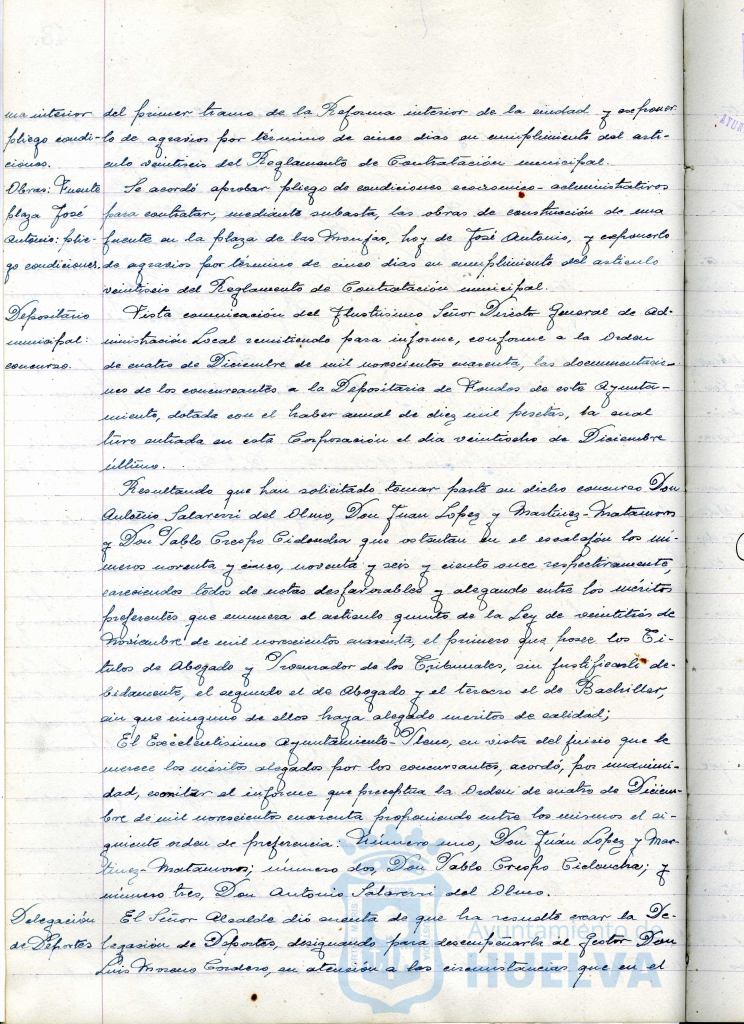 ma interior del primer tramo de la Reforma interior de la ciudad y exponer-
pliego condi- lo de agravios por término de cinco dias en cumplimiento del arti-
ciones. culo veintiseis del Reglamento de Contratación municipal.
Obras: Fuente Se acordó aprobar pliego de condiciones economico-administrativos
plaza José para contratar, mediante subasta, las obras de construcción de una
Antonio: plie- fuente en la plaza de las Monjas, hoy de José Antonio, y exponerlo
go condiciones. de agravios por término de cinco dias en cumplimiento del articulo
veintiseis del Reglamento de Contratación municipal.
Depositario Vista comunicación del Ilustrisimo Señor Director General de Ad-
municipal: ministración Local remitiendo para informe, conforme a la Orden
concurso. de cuatro de Diciembre de mil novecientos cuarenta, las documentacio-
nes de los concursantes a la Depositaria de Fondos de este Ayunta-
miento, dotada con el haber anual de diez mil pesetas, la cual
tuvo entrada en esta Corporación el dia veintiocho de Diciembre
último.
Resultando que han solicitado tomar parte en dicho concurso Don
Antonio Salarerri del Olmo, Don Juan Lopez y Martinez-Matamoros
y Don Pablo Crespo Cidoncha que ostentan en el escalafón los nú-
meros noventa y cinco, noventa y seis y ciento once respectivamente,
careciendo todos de notas desfavorables y alegando entre los méritos
preferentes que enumera el articulo quinto de la Ley de veintitrés de
Noviembre de mil novecientos cuarenta, el primero que posee los Ti-
tulos de Abogado y Procurador de los Tribunales, sin justificarlo de-
bidamente, el segundo el de Abogado y el tercero el de Bachiller,
sin que ninguno de ellos haya alegado meritos de calidad;
El Excelentisimo Ayuntamiento-Pleno, en vista del juicio que le
merece los méritos alegados por los concursantes, acordó, por unanimi-
dad, emitir el informe que preceptua la Orden de cuatro de Diciem-
bre de mil novecientos cuarenta proponiendo entre los mismos el si-
guiente orden de preferencia: Número uno, Don Juán Lopez y Mar-
tinez-Matamoros; número dos, Don Pablo Crespo Cidoncha; y
número tres, Don Antonio Salarerri del Olmo.
Delegación El Señor Alcalde dió cuenta de que ha resuelto crear la De-
de Deportes legación de Deportes, designando para desempeñarla al Gestor Don
Luis Moreno Cordero, en atención a las circunstancias que en el
Ayuntamiento de
HUELVA